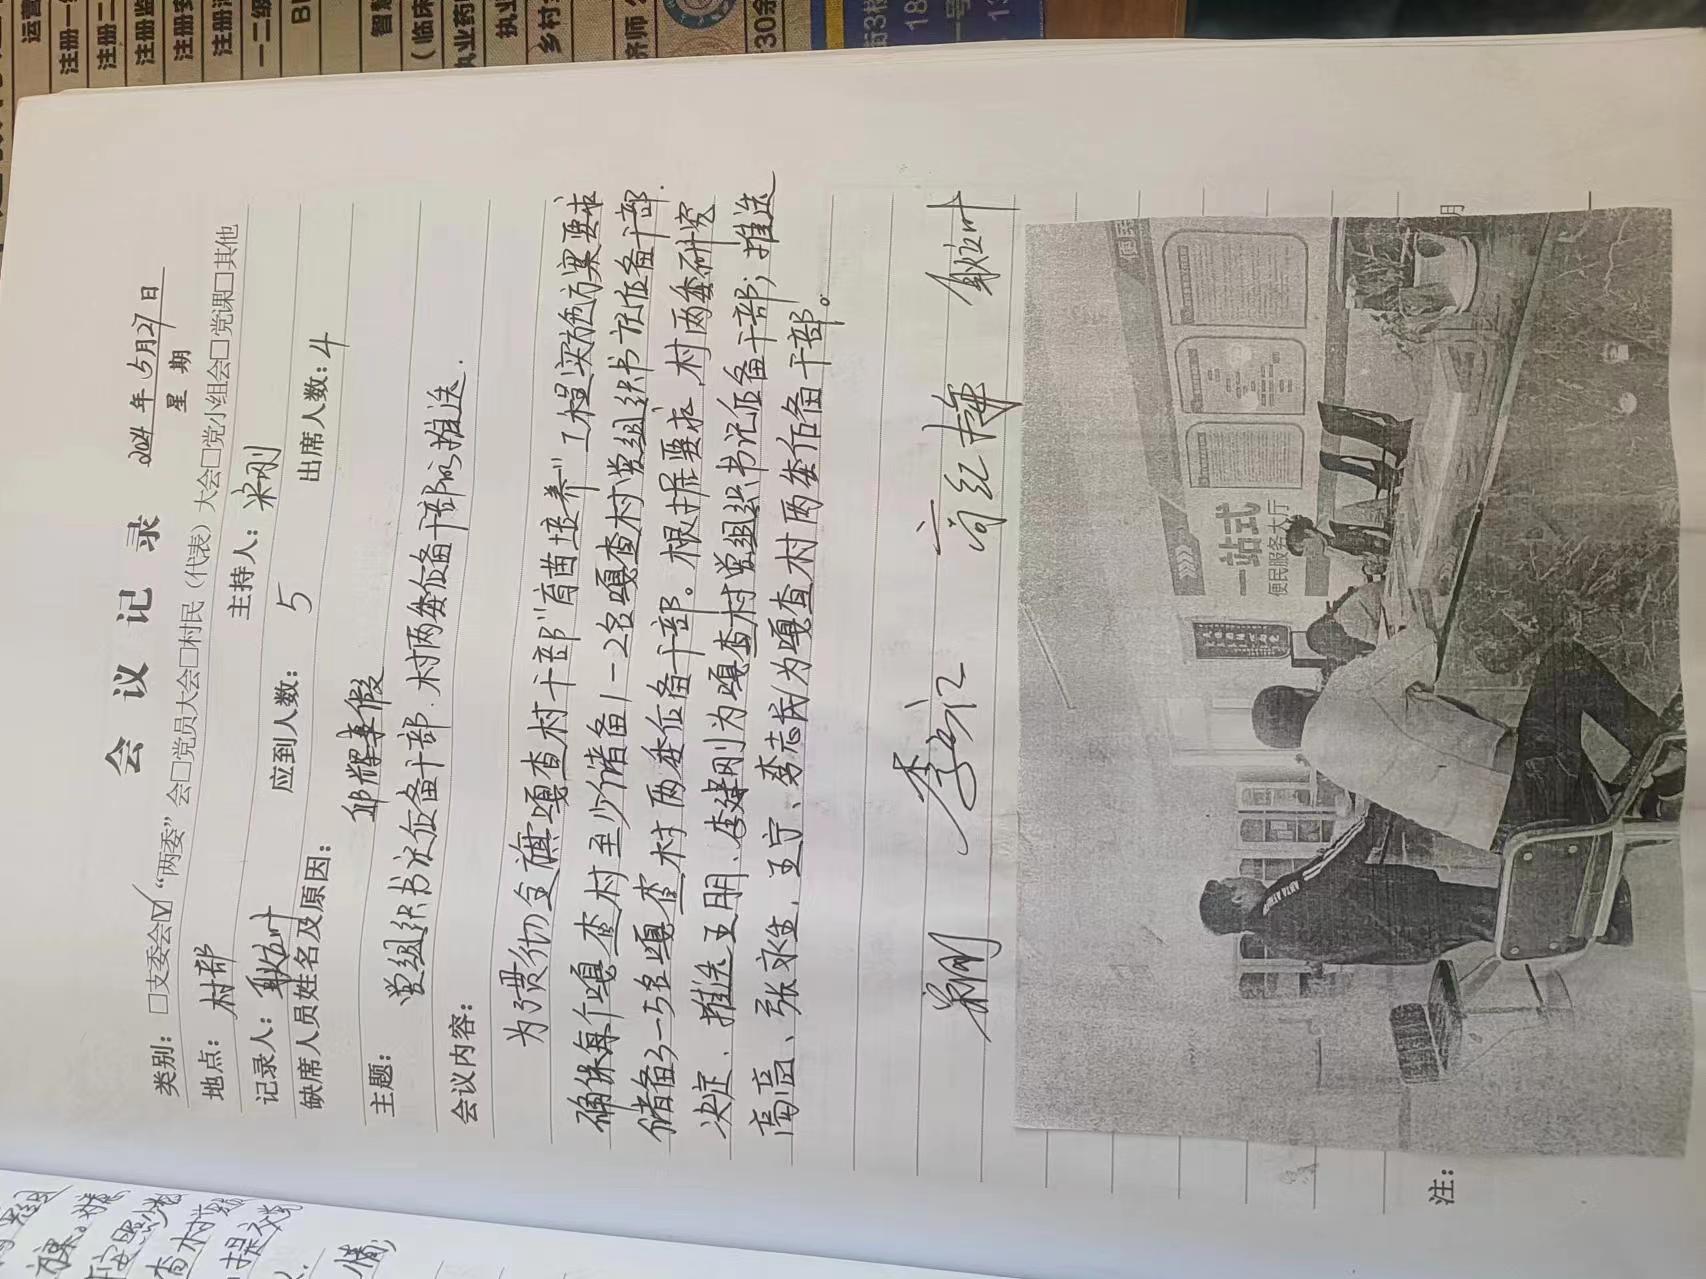 会 议 记 录
2024 年 5 月 27 日
星 期
类别：□支委会☑“两委”会□党员大会□村民（代表）大会□党小组会□党课□其他
地点：村部 主持人：宋刚
记录人： 应到人数：5 出席人数：4
缺席人员姓名及原因：
邱辉事假
主题：
党组织书记后备干部、村两委后备干部的推送.
会议内容：
为了贯彻全旗嘎查村干部“育苗培养”工程实施方案要求
确保每个嘎查村至少储备1-2名嘎查村党组织书记后备干部.
储备3-5名嘎查村两委后备干部。根据要求、村两委研究
决定、推送王明、李建刚为嘎查村党组织书记后备干部；推送
高亮、张永生、王宁、李志成为嘎查村两委后备干部。
高红梅
一站式
便民服务大厅
注：
月
运营
注册一级
注册二
注册监
注册安
注册消
一二级
智慧
（临床
执业药
执业
乡村
济师
30余
街3楼
一号